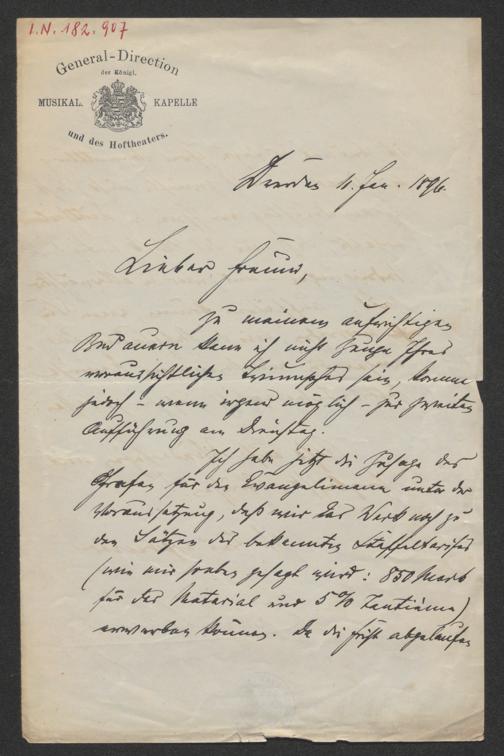 I.N. 182.907
General-Direction
der Königl.
MUSIKAL. KAPELLE
und des Hoftheaters.
Dresden 11. Jan. 1896.
Lieber Freund,
Zu meinem aufrichtigen
Bedauern kann ich nicht Zeuge Ihres
voraussichtlichen Triumphes sein, komme
jedoch – wenn irgend möglich – zur zweiten
Aufführung am Dienstag.
Ich habe jetzt die Zusage des
Grafen für den Evangelimann unter der
Voraussetzung, daß wir das Werk noch zu
den Sätzen des bekannten Staffeltarifes
(wie mir soeben gesagt wird: 850 Mark
für das Material und 5% Tantième)
erwerben können. Da die Frist abgelaufen